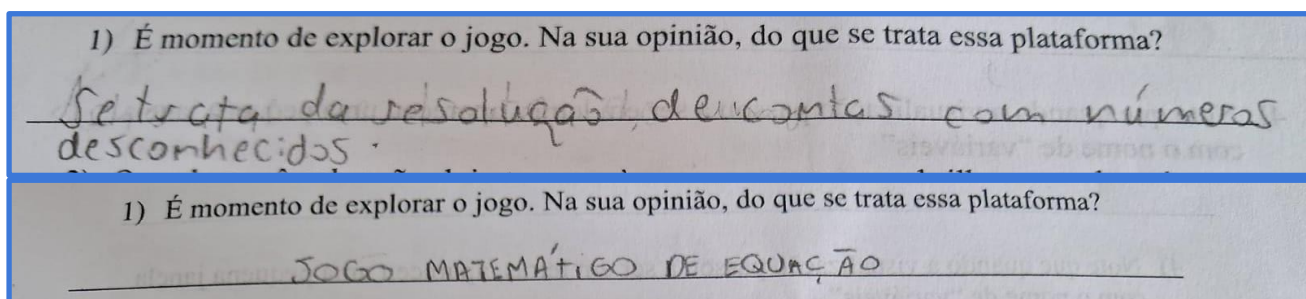 1) É momento de explorar o jogo. Na sua opinião, do que se trata essa plataforma?
Se trata da resolução de contas com números
desconhecidos.
1) É momento de explorar o jogo. Na sua opinião, do que se trata essa plataforma?
JOGO MATEMÁTICO DE EQUAÇÃO